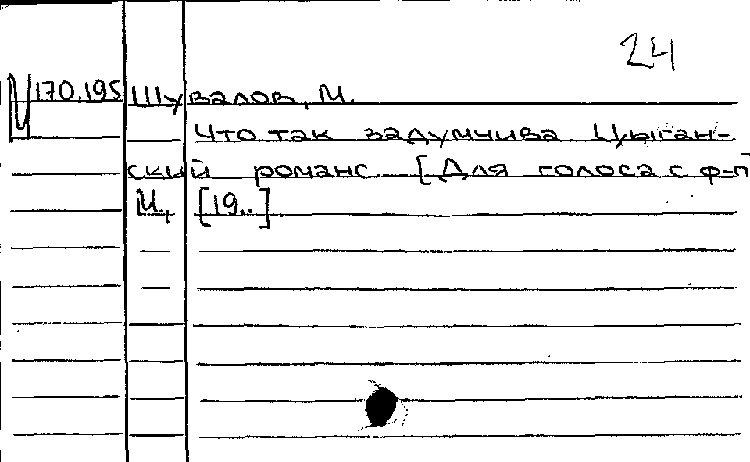 24
170.195 Шувалов, М.
Что так задумчива Цыган-
ский романс [Для голоса с ф-п
М., [19..]